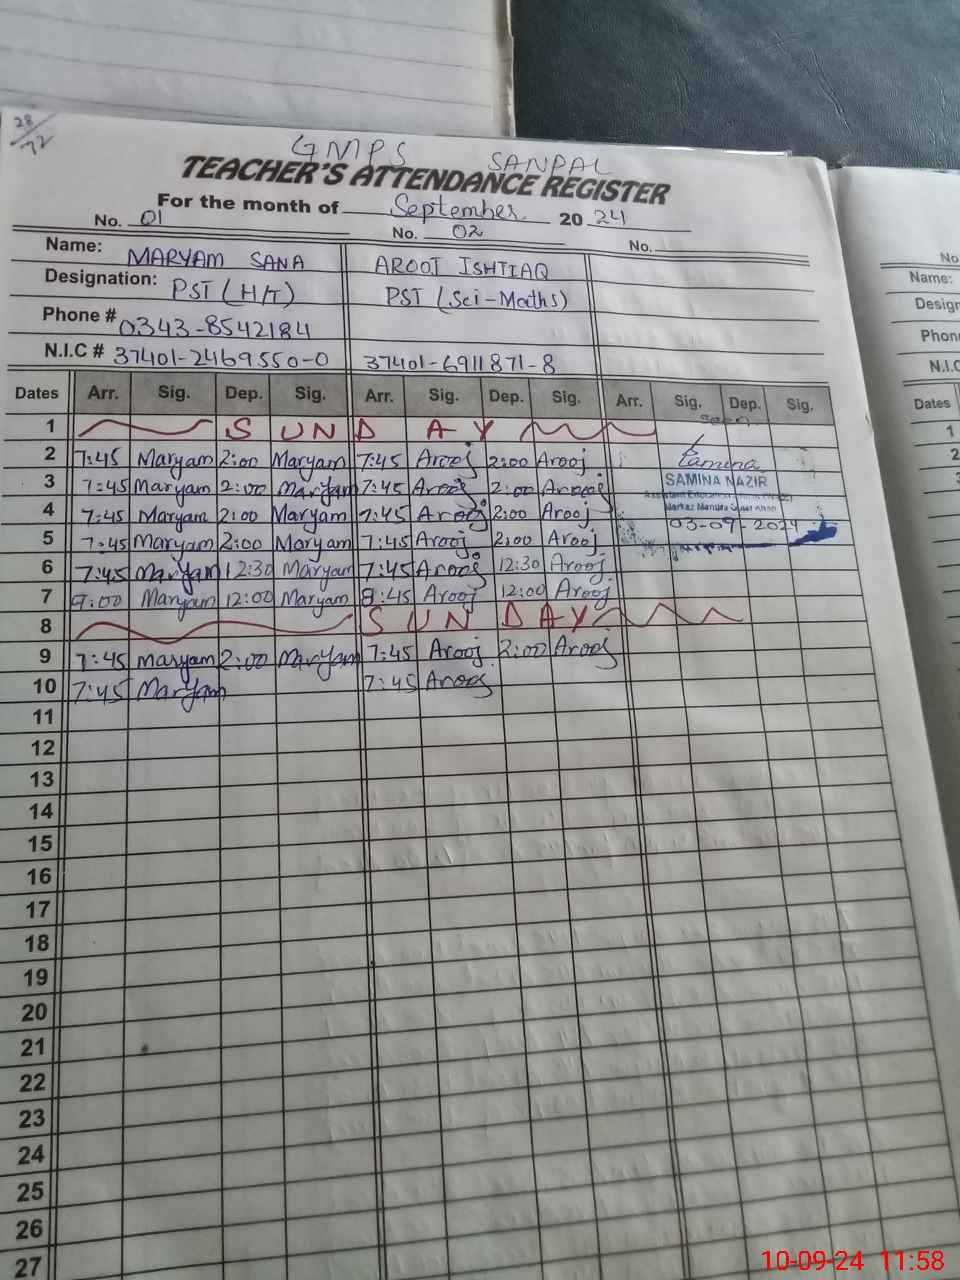 28/72
GMPS SANPAL
TEACHER'S ATTENDANCE REGISTER
For the month of September 20 24
No. 01 No. 02 No.
Name: MARYAM SANA AROOJ ISHTIAQ
Designation: PST (H/T) PST (Sci-Maths)
Phone # 0343-8542184
N.I.C # 37401-2469550-0 37401-6911871-8
Dates Arr. Sig. Dep. Sig. Arr. Sig. Dep. Sig. Arr. Sig. Dep. Sig.
seen
1 SUNDAY
2 7:45 Maryam 2:00 Maryam 7:45 Arooj 2:00 Arooj
SAMINA NAZIR
3 7:45 Maryam 2:00 Maryam 7:45 Arooj 2:00 Arooj
4 7:45 Maryam 2:00 Maryam 7:45 Arooj 2:00 Arooj
03-09-2024
5 7:45 Maryam 2:00 Maryam 7:45 Arooj 2:00 Arooj
6 7:45 Maryam 12:30 Maryam 7:45 Arooj 12:30 Arooj
7 9:00 Maryam 12:00 Maryam 8:45 Arooj 12:00 Arooj
8 SUNDAY
9 7:45 Maryam 2:00 Maryam 7:45 Arooj 2:00 Arooj
10 7:45 Maryam 7:45 Arooj
11
12
13
14
15
16
17
18
19
20
21
22
23
24
25
26
27
No
Name:
Design
Phon
N.I.C
Dates
1
2
3
10-09-24 11:58